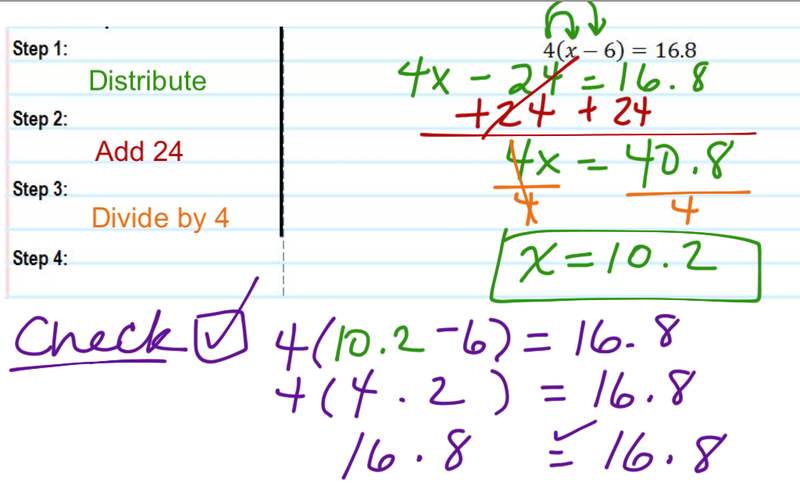 Step 1:
Distribute
Step 2:
Add 24
Step 3:
Divide by 4
Step 4:
4(x − 6) = 16.8
4x − 24 = 16.8
+24 + 24
4x = 40.8
4 4
x = 10.2
Check ✓ 4(10.2 −6) = 16.8
4(4.2) = 16.8
16.8 = 16.8 ✓